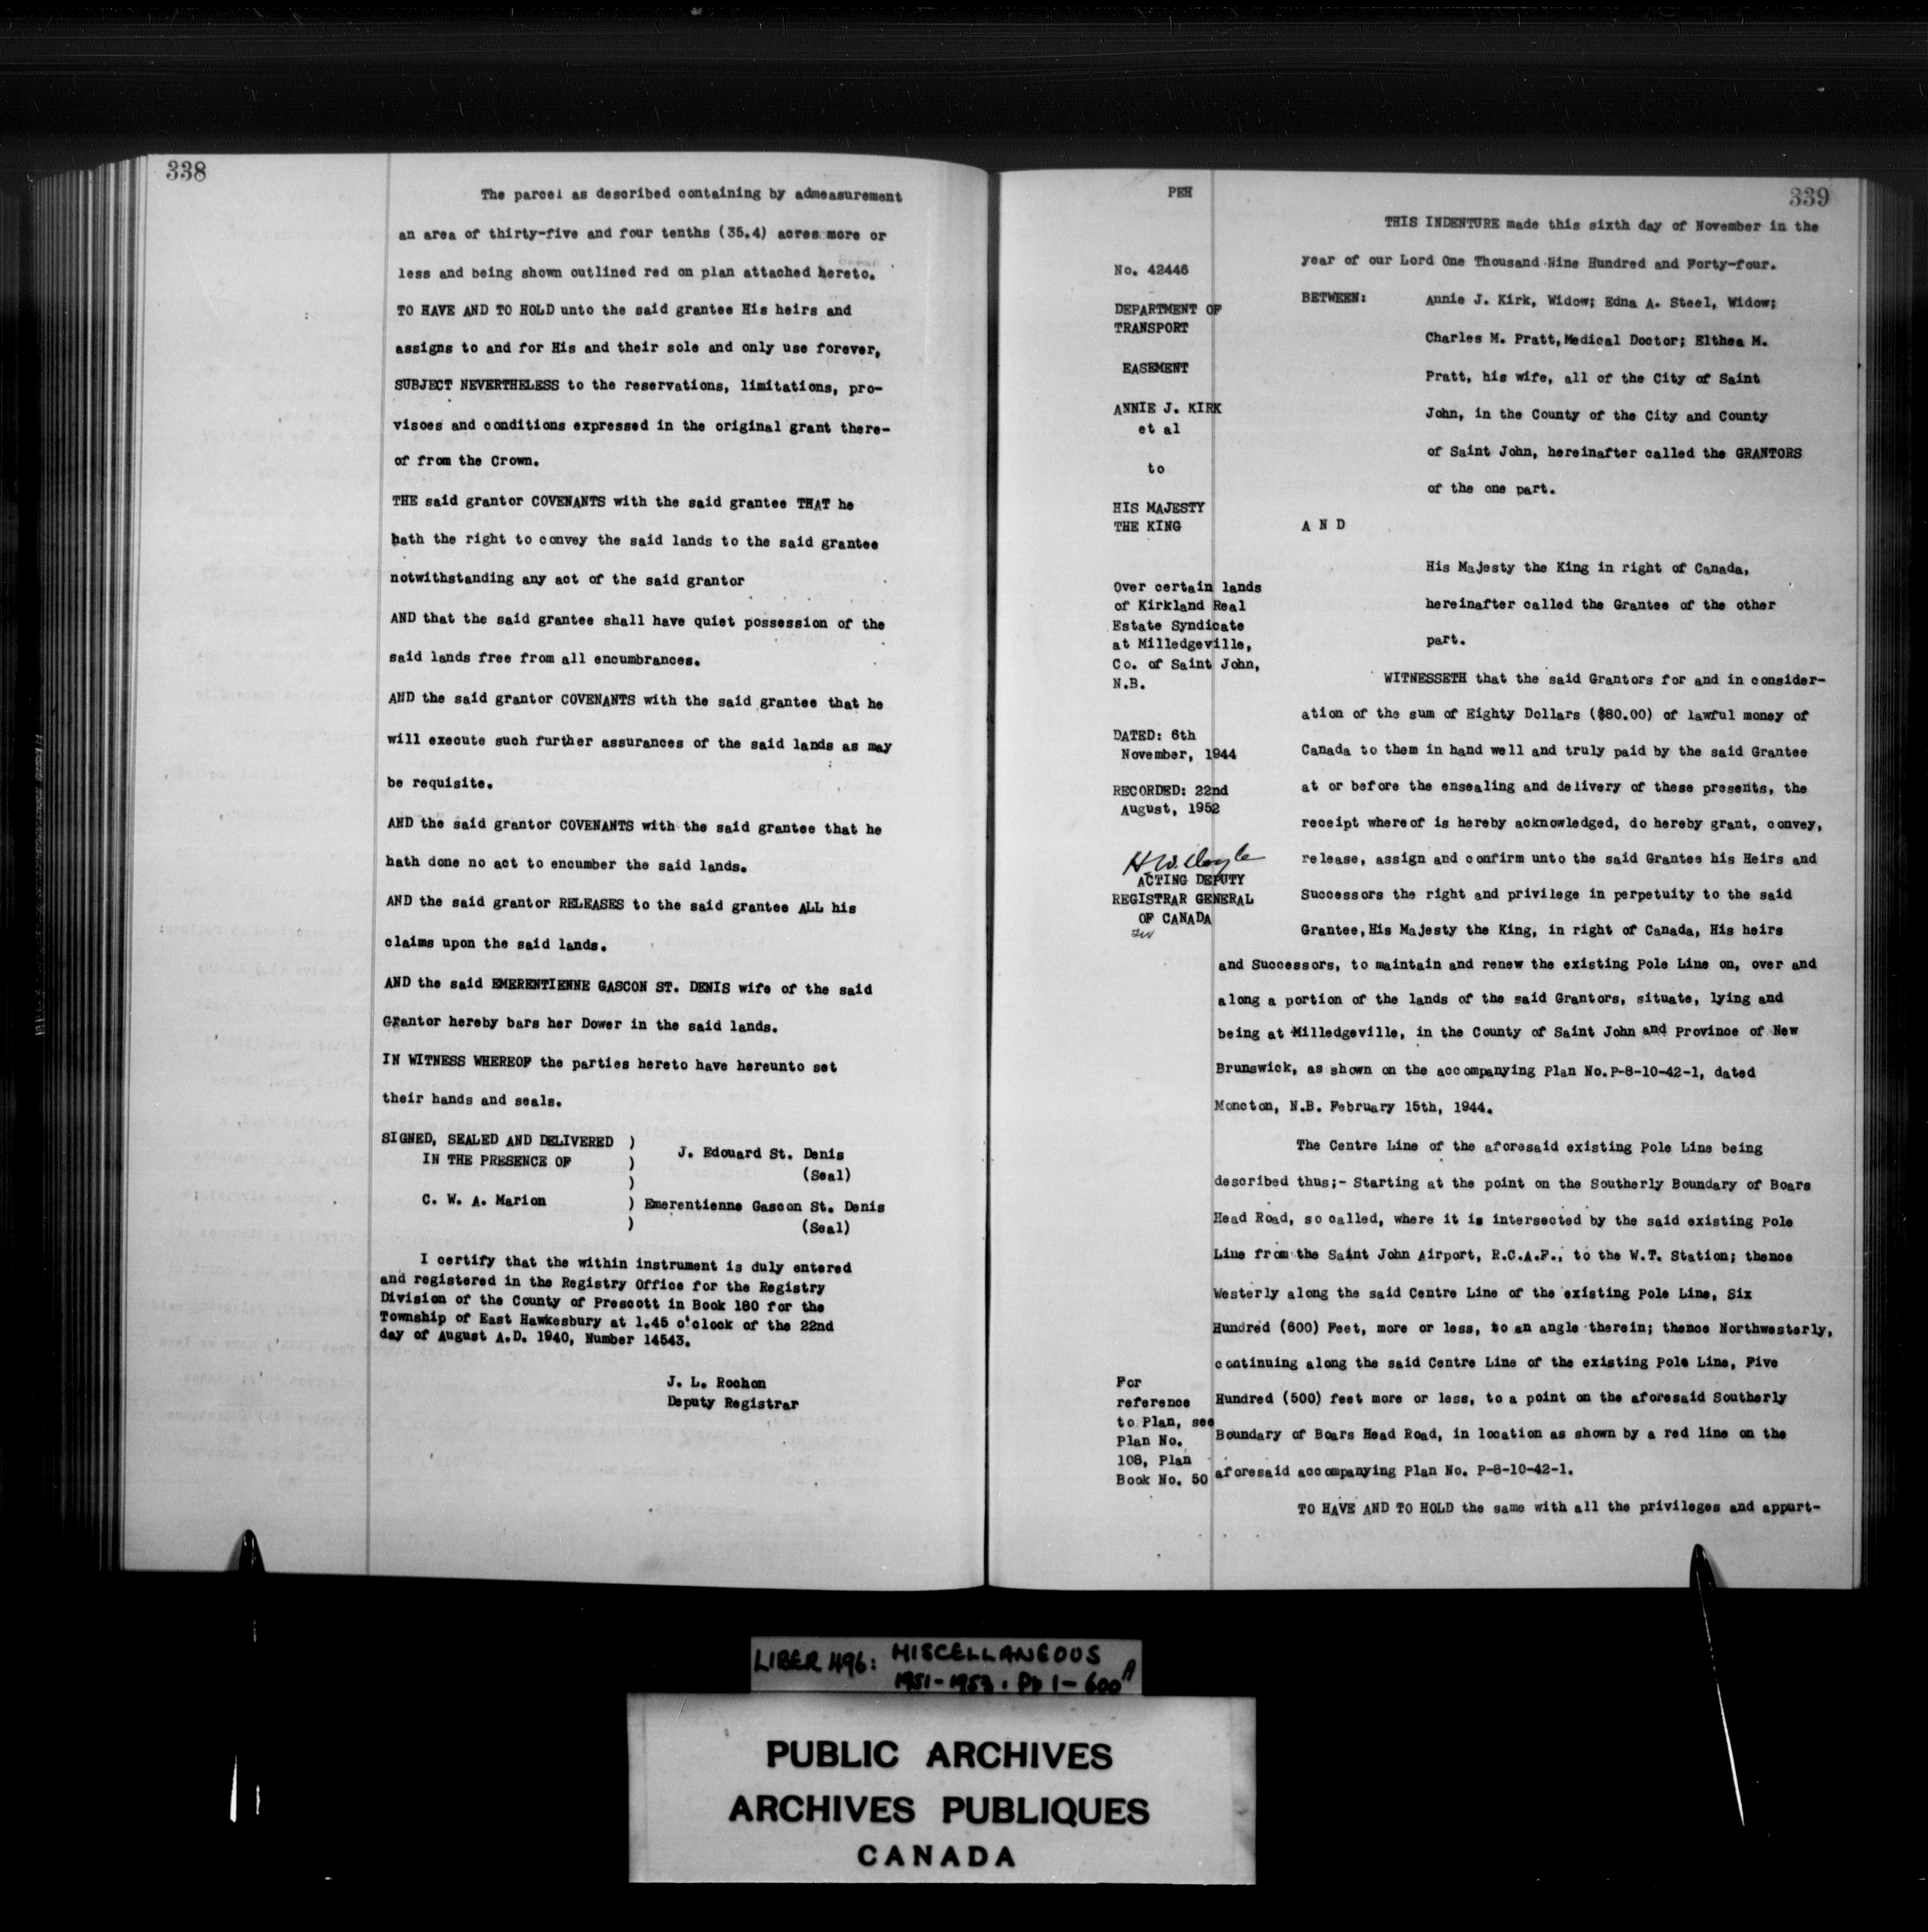 338
The parcel as described containing by admeasurement
an area of thirty-five and four tenths (35.4) acres more or
less and being shown outlined red on plan attached hereto.
TO HAVE AND TO HOLD unto the said grantee His heirs and
assigns to and for His and their sole and only use forever,
SUBJECT NEVERTHELESS to the reservations, limitations, pro-
visoes and conditions expressed in the original grant there-
of from the Crown.
THE said grantor COVENANTS with the said grantee THAT he
hath the right to convey the said lands to the said grantee
notwithstanding any act of the said grantor
AND that the said grantee shall have quiet possession of the
said lands free from all encumbrances.
AND the said grantor COVENANTS with the said grantee that he
will execute such further assurances of the said lands as may
be requisite.
AND the said grantor COVENANTS with the said grantee that he
hath done no act to encumber the said lands.
AND the said grantor RELEASES to the said grantee ALL his
claims upon the said lands.
AND the said EMERENTIENNE GASCON ST. DENIS wife of the said
Grantor hereby bars her Dower in the said lands.
IN WITNESS WHEREOF the parties hereto have hereunto set
their hands and seals.
SIGNED, SEALED AND DELIVERED )
IN THE PRESENCE OF ) J. Edouard St. Denis
) (Seal)
C. W. A. Marion ) Emerentienne Gascon St. Denis
) (Seal)
I certify that the within instrument is duly entered
and registered in the Registry Office for the Registry
Division of the County of Prescott in Book 180 for the
Township of East Hawkesbury at 1.45 o'clock of the 22nd
day of August A.D. 1940, Number 14543.
J. L. Rochon
Deputy Registrar
339
PEH
No. 42446
DEPARTMENT OF
TRANSPORT
EASEMENT
ANNIE J. KIRK
et al
to
HIS MAJESTY
THE KING
Over certain lands
of Kirkland Real
Estate Syndicate
at Milledgeville,
Co. of Saint John,
N.B.
DATED: 6th
November, 1944
RECORDED: 22nd
August, 1952
H.W. Doyle
ACTING DEPUTY
REGISTRAR GENERAL
OF CANADA
THIS INDENTURE made this sixth day of November in the
year of our Lord One Thousand Nine Hundred and Forty-four.
BETWEEN: Annie J. Kirk, Widow; Edna A. Steel, Widow;
Charles M. Pratt, Medical Doctor; Elthea M.
Pratt, his wife, all of the City of Saint
John, in the County of the City and County
of Saint John, hereinafter called the GRANTORS
of the one part.
A N D
His Majesty the King in right of Canada,
hereinafter called the Grantee of the other
part.
WITNESSETH that the said Grantors for and in consider-
ation of the sum of Eighty Dollars ($80.00) of lawful money of
Canada to them in hand well and truly paid by the said Grantee
at or before the ensealing and delivery of these presents, the
receipt whereof is hereby acknowledged, do hereby grant, convey,
release, assign and confirm unto the said Grantee his Heirs and
Successors the right and privilege in perpetuity to the said
Grantee, His Majesty the King, in right of Canada, His heirs
and Successors, to maintain and renew the existing Pole Line on, over and
along a portion of the lands of the said Grantors, situate, lying and
being at Milledgeville, in the County of Saint John and Province of New
Brunswick, as shown on the accompanying Plan No. P-8-10-42-1, dated
Moncton, N.B. February 15th, 1944.
The Centre Line of the aforesaid existing Pole Line being
described thus;- Starting at the point on the Southerly Boundary of Boars
Head Road, so called, where it is intersected by the said existing Pole
Line from the Saint John Airport, R.C.A.F., to the W.T. Station; thence
Westerly along the said Centre Line of the existing Pole Line, Six
Hundred (600) Feet, more or less, to an angle therein; thence Northwesterly,
continuing along the said Centre Line of the existing Pole Line, Five
Hundred (500) feet more or less, to a point on the aforesaid Southerly
Boundary of Boars Head Road, in location as shown by a red line on the
aforesaid accompanying Plan No. P-8-10-42-1.
For
reference
to Plan, see
Plan No.
108, Plan
Book No. 50
TO HAVE AND TO HOLD the same with all the privileges and appurt-
LIBER 496: MISCELLANEOUS
1951-1953. Pp 1-600A
PUBLIC ARCHIVES
ARCHIVES PUBLIQUES
CANADA